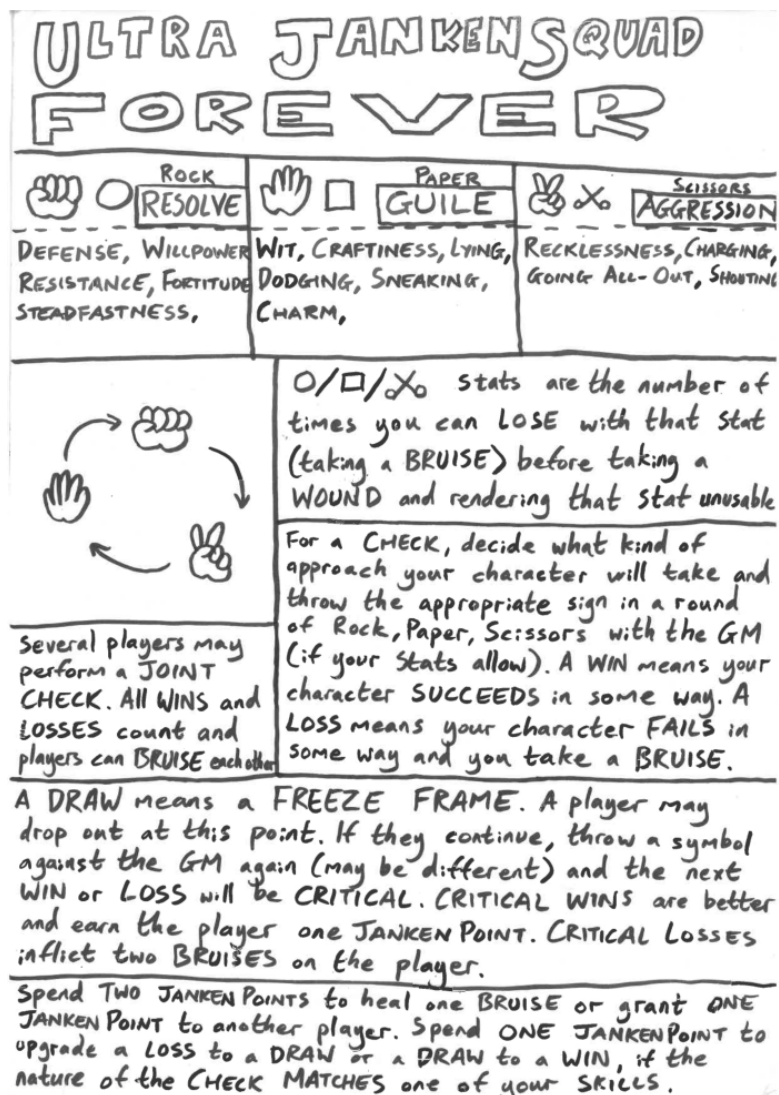 ULTRA JANKENSQUAD
FOREVER
ROCK
RESOLVE
DEFENSE, WILLPOWER
RESISTANCE, FORTITUDE
STEADFASTNESS,
PAPER
GUILE
WIT, CRAFTINESS, LYING,
DODGING, SNEAKING,
CHARM,
SCISSORS
AGGRESSION
RECKLESSNESS, CHARGING,
GOING ALL-OUT, SHOUTING
stats are the number of
times you can LOSE with that stat
(taking a BRUISE) before taking a
WOUND and rendering that stat unusable
For a CHECK, decide what kind of
approach your character will take and
throw the appropriate sign in a round
of Rock, Paper, Scissors with the GM
(if your stats allow). A WIN means your
character SUCCEEDS in some way. A
LOSS means your character FAILS in
some way and you take a BRUISE.
Several players may
perform a JOINT
CHECK. All WINS and
LOSSES count and
players can BRUISE each other
A DRAW means a FREEZE FRAME. A player may
drop out at this point. If they continue, throw a symbol
against the GM again (may be different) and the next
WIN or LOSS will be CRITICAL. CRITICAL WINS are better
and earn the player one JANKEN POINT. CRITICAL LOSSES
inflict two BRUISES on the player.
Spend TWO JANKEN POINTS to heal one BRUISE or grant ONE
JANKEN POINT to another player. Spend ONE JANKEN POINT to
upgrade a LOSS to a DRAW or a DRAW to a WIN, if the
nature of the CHECK MATCHES one of your SKILLS.